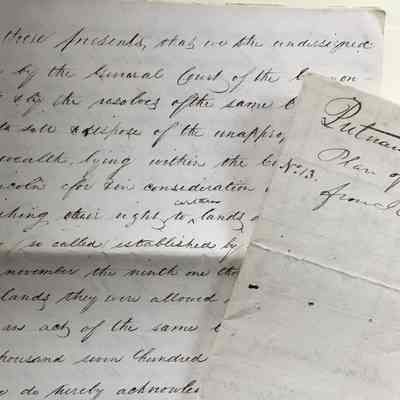 these presents, that we the undersigned
by the General Court of the Common-
& by the resolves of the same C
to sell & dispose of the unappro
wealth, lying within the C
Lincoln for & in consideration
ishing their right to certain lands
so called established by
november the ninth one tho
lands they were allowed
an act of the same
thousand seven hundred
do hereby acknowle
Putnam
Plan of
No. 13.
from